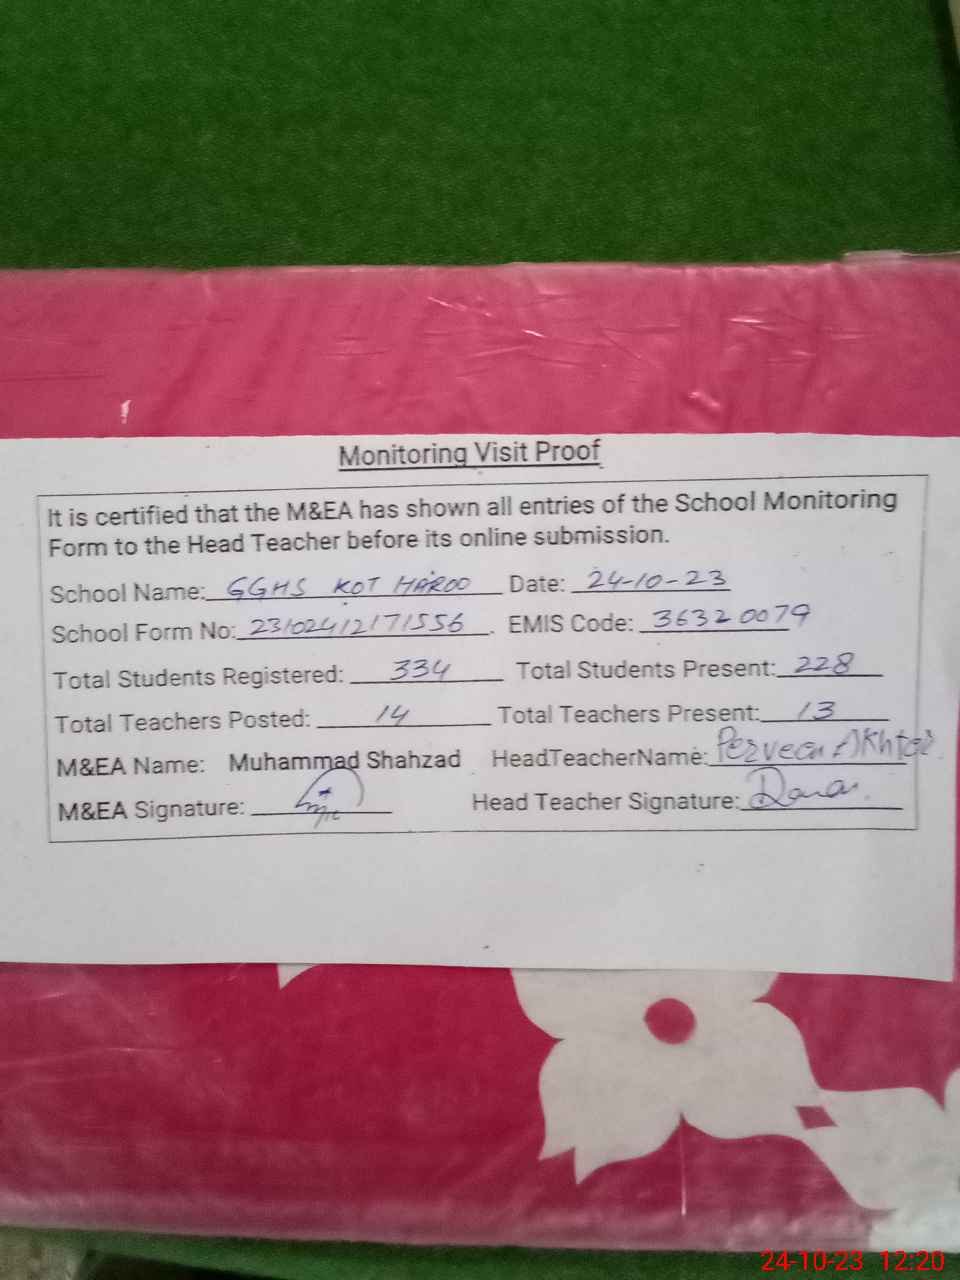 Monitoring Visit Proof
It is certified that the M&EA has shown all entries of the School Monitoring
Form to the Head Teacher before its online submission.
School Name: GGHS KOT HAROO Date: 24-10-23
School Form No: 23102412171556. EMIS Code: 36320079
Total Students Registered: 334 Total Students Present: 228
Total Teachers Posted: 14 Total Teachers Present: 13
M&EA Name: Muhammad Shahzad HeadTeacherName: Perveen Akhtar
M&EA Signature: Head Teacher Signature:
24-10-23 12:20